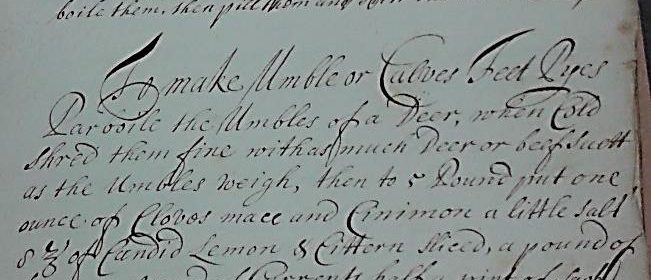 boile them, then pill them and
To make Umble or Calves Feet Pyes
Parboile the Umbles of a Deer, when Cold
shred them fine with as much Deer or beef suett
as the Umbles weigh, then to 5 Pound put one
ounce of Cloves mace and Cinimon a little salt
of Candid Lemon & Cittern sliced, a pound of
Currents half a pint of